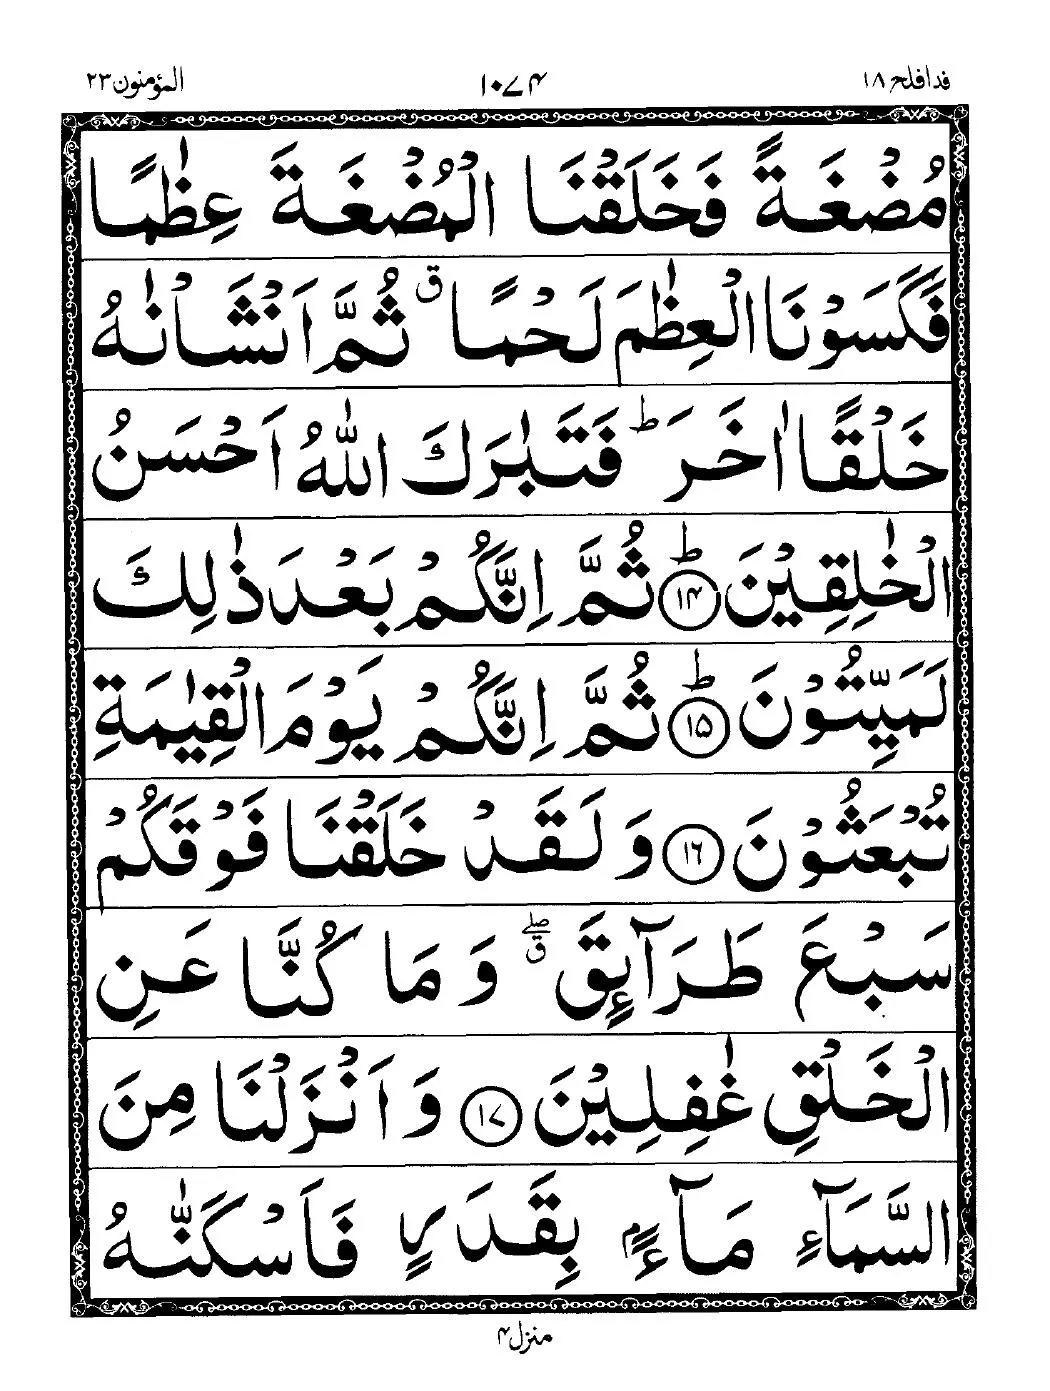 قد افلح ١٨ ١٠٧۴ المؤمنون ٢٣
مُضْغَةً فَخَلَقْنَا الْمُضْغَةَ عِظٰمًا
فَكَسَوْنَا الْعِظٰمَ لَحْمًا ۗ ثُمَّ اَنْشَاْنٰهُ
خَلْقًا اٰخَرَ ؕ فَتَبٰرَكَ اللّٰهُ اَحْسَنُ
الْخٰلِقِيْنَ ؕ ﴿۱۴﴾ ثُمَّ اِنَّكُمْ بَعْدَ ذٰلِكَ
لَمَيِّتُوْنَ ؕ ﴿۱۵﴾ ثُمَّ اِنَّكُمْ يَوْمَ الْقِيٰمَةِ
تُبْعَثُوْنَ ﴿۱۶﴾ وَ لَقَدْ خَلَقْنَا فَوْقَكُمْ
سَبْعَ طَرَآئِقَ ۖ ق وَ مَا كُنَّا عَنِ
الْخَلْقِ غٰفِلِيْنَ ﴿۱۷﴾ وَ اَنْزَلْنَا مِنَ
السَّمَآءِ مَآءًۢ بِقَدَرٍ فَاَسْكَنّٰهُ
منزل ۴